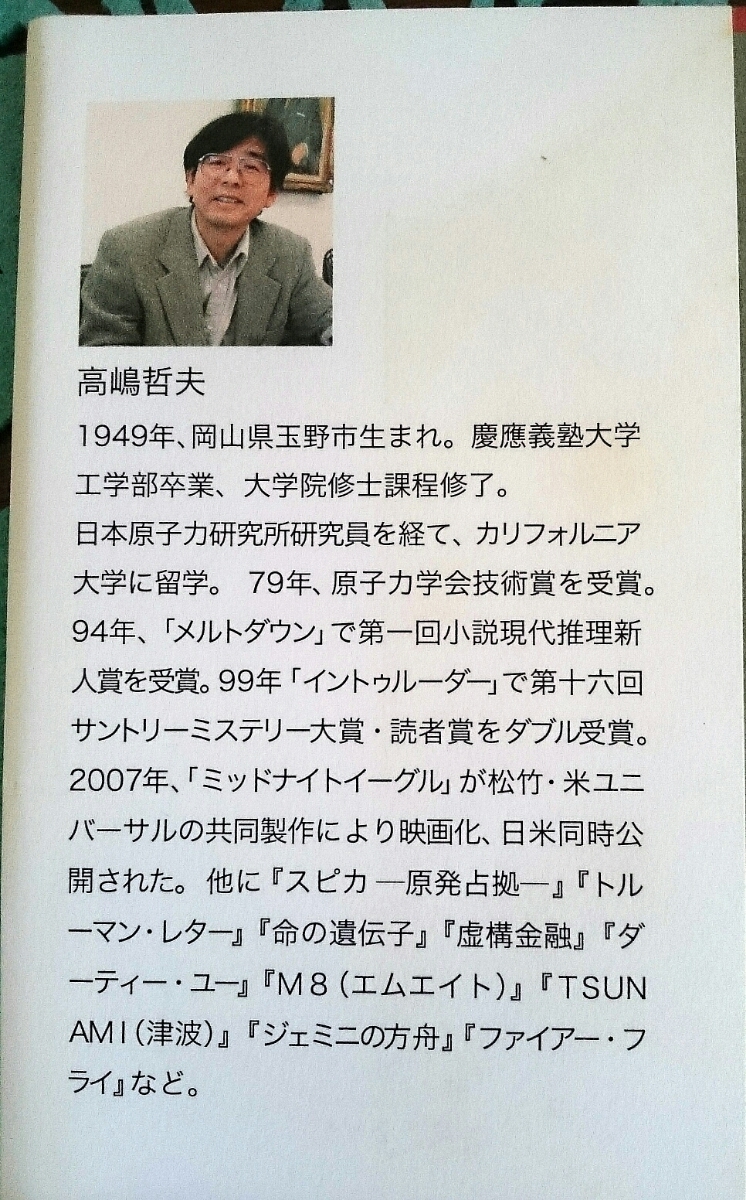 高嶋哲夫
1949年、岡山県玉野市生まれ。慶應義塾大学
工学部卒業、大学院修士課程修了。
日本原子力研究所研究員を経て、カリフォルニア
大学に留学。 79年、原子力学会技術賞を受賞。
94年、「メルトダウン」で第一回小説現代推理新
人賞を受賞。99年「イントゥルーダー」で第十六回
サントリーミステリー大賞・読者賞をダブル受賞。
2007年、「ミッドナイトイーグル」が松竹・米ユニ
バーサルの共同製作により映画化、日米同時公
開された。他に『スピカ ―原発占拠―』『トル
ーマン・レター』『命の遺伝子』『虚構金融』『ダ
ーティー・ユー』『M8（エムエイト）』『TSUN
AMI（津波）』『ジェミニの方舟』『ファイアー・フ
ライ』など。